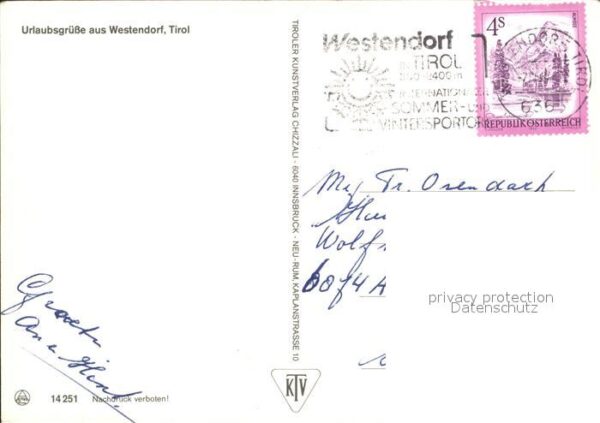 Urlaubsgrüße aus Westendorf, Tirol
TIROLER KUNSTVERLAG CHIZZALI · 6040 INNSBRUCK · NEU-RUM, KAPLANSTRASSE 10
Westendorf
in TIROL
800-2400 m
INTERNATIONALER
SOMMER- und
WINTERSPORTORT
4S
REPUBLIK ÖSTERREICH
WESTENDORF TIROL
636
Mej Tr. Osendach
Wolf
6074
privacy protection
Datenschutz
KTV
14 251 Nachdruck verboten!